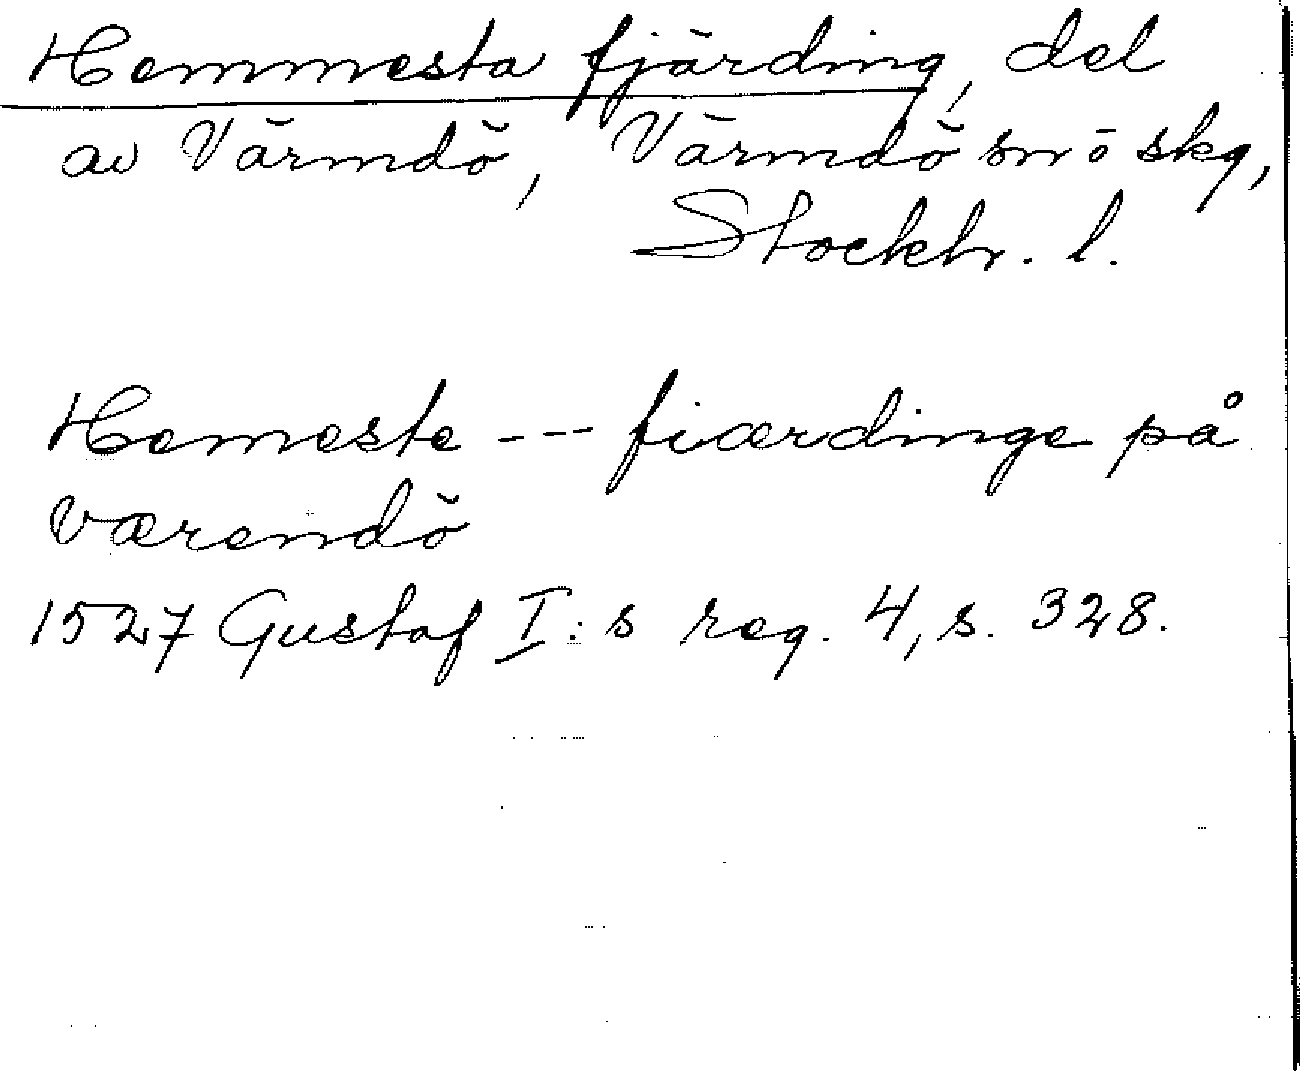 Hemmesta fjärding, del
av Värmdö, Värmdö sn o skg,
Stockh. l.
Hemeste --- fiærdinge på
Værendö
1527 Gustaf I:s reg. 4, s. 328.